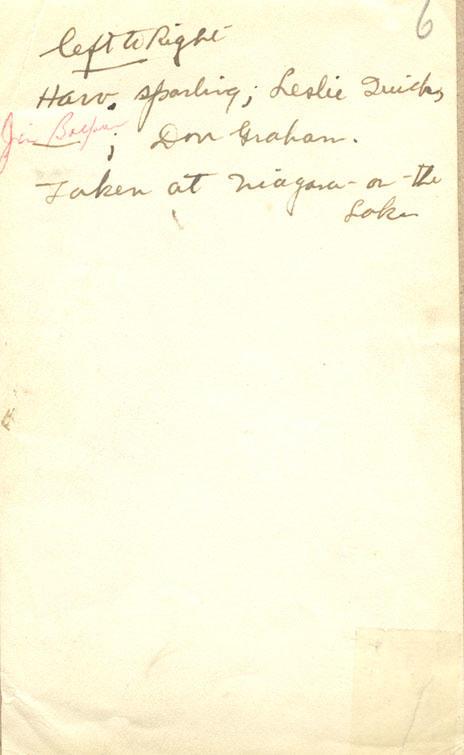 6
Left to Right
Harv. Sparling; Leslie Quick,
Jim ; Don Graham.
Taken at Niagara-on-the
Lake